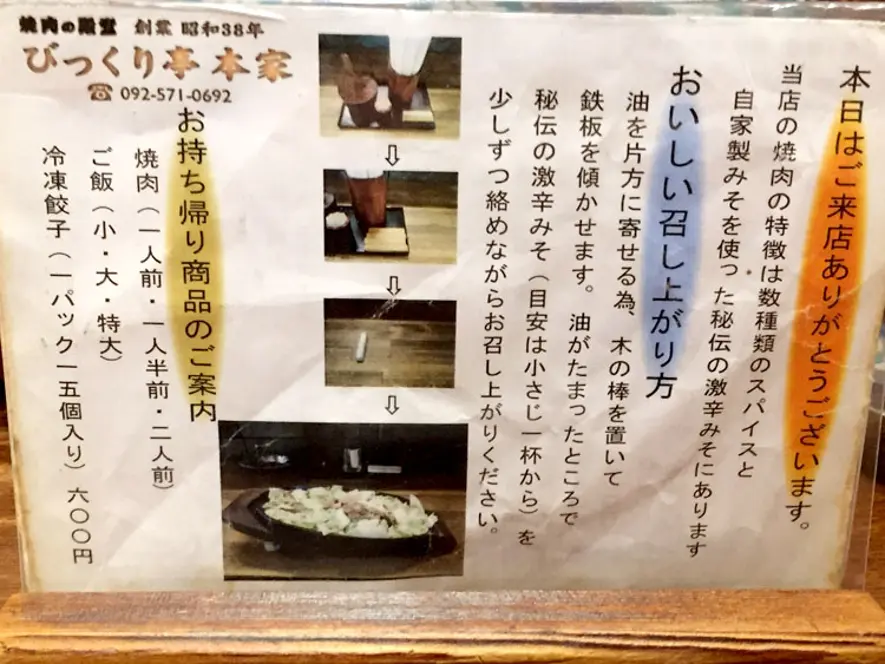 本日はご来店ありがとうございます。
当店の焼肉の特徴は数種類のスパイスと
自家製みそを使った秘伝の激辛みそにあります
おいしい召し上がり方
油を片方に寄せる為、木の棒を置いて
鉄板を傾かせます。油がたまったところで
秘伝の激辛みそ（目安は小さじ一杯から）を
少しずつ絡めながらお召し上がりください。
焼肉の殿堂 創業 昭和38年
びっくり亭 本家
☎ 092-571-0692
お持ち帰り商品のご案内
焼肉（一人前・一人半前・二人前）
ご飯（小・大・特大）
冷凍餃子（一パック一五個入り）六〇〇円